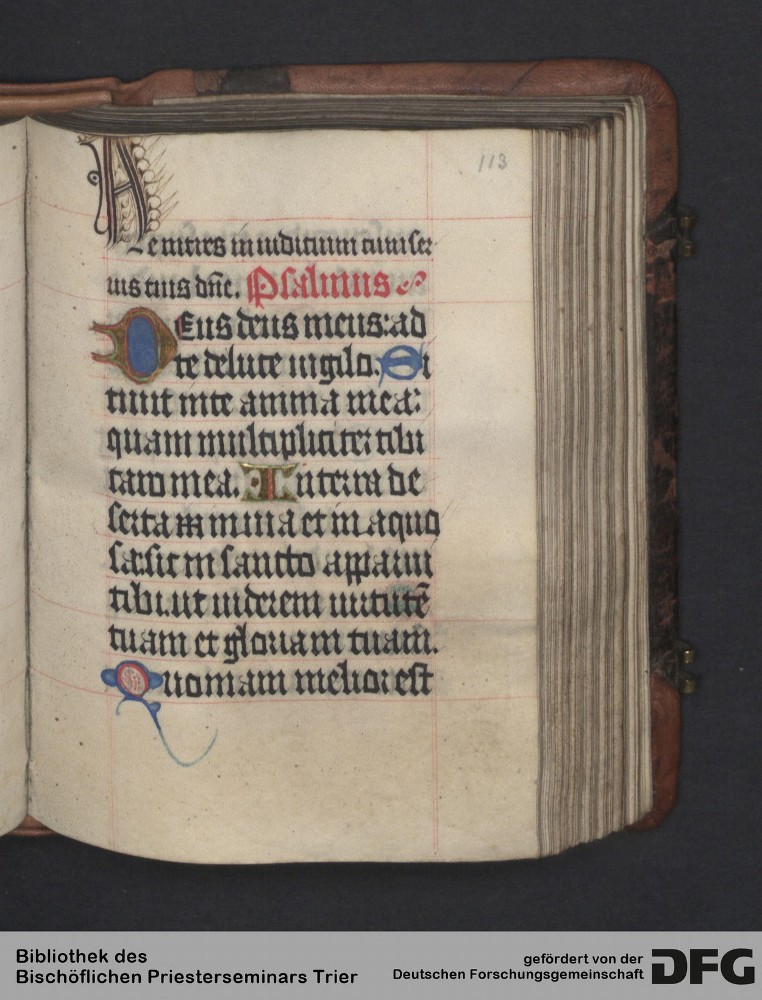 113
Ne intres in iudicium cum ser
uis tuis dñe. Psalmus
Deus deus meus: ad
te de luce uigilo. Si
tiuit in te anima mea:
quam multipliciter tibi
caro mea. In terra de
serta et in inuia et in aquo
sa: sic in sancto apparui
tibi. ut uiderem uirtutē
tuam et gloriam tuam.
Quoniam melior est
Bibliothek des
Bischöflichen Priesterseminars Trier
gefördert von der
Deutschen Forschungsgemeinschaft
DFG